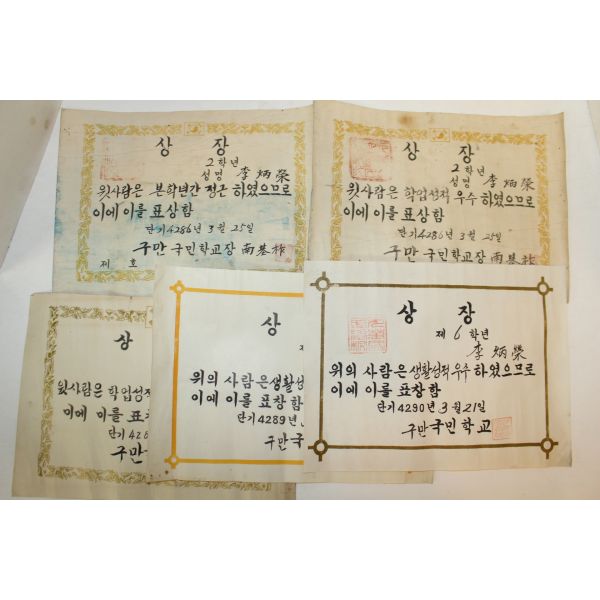 상 장
2학년
성명 李炳榮
윗사람은 본학년간 정근 하였으므로
이에 이를 표상함
단기 4286년 3월 25일
구만 국민학교장 南基祚
제 호
상 장
2학년
성명 李炳榮
윗사람은 학업성적 우수 하였으므로
이에 이를 표상함
단기 4286년 3월 25일
구만 국민학교장 南基祚
상
윗사람은 학업성적
이에 이를 표
단기 428
구만
상
제
위의 사람은 생활성
이에 이를 표창함
단기 4289년
구만 국
상 장
제 6 학년
李炳榮
위의 사람은 생활성적 우수 하였으므로
이에 이를 표창함
단기 4290년 3월 21일
구만 국민학교